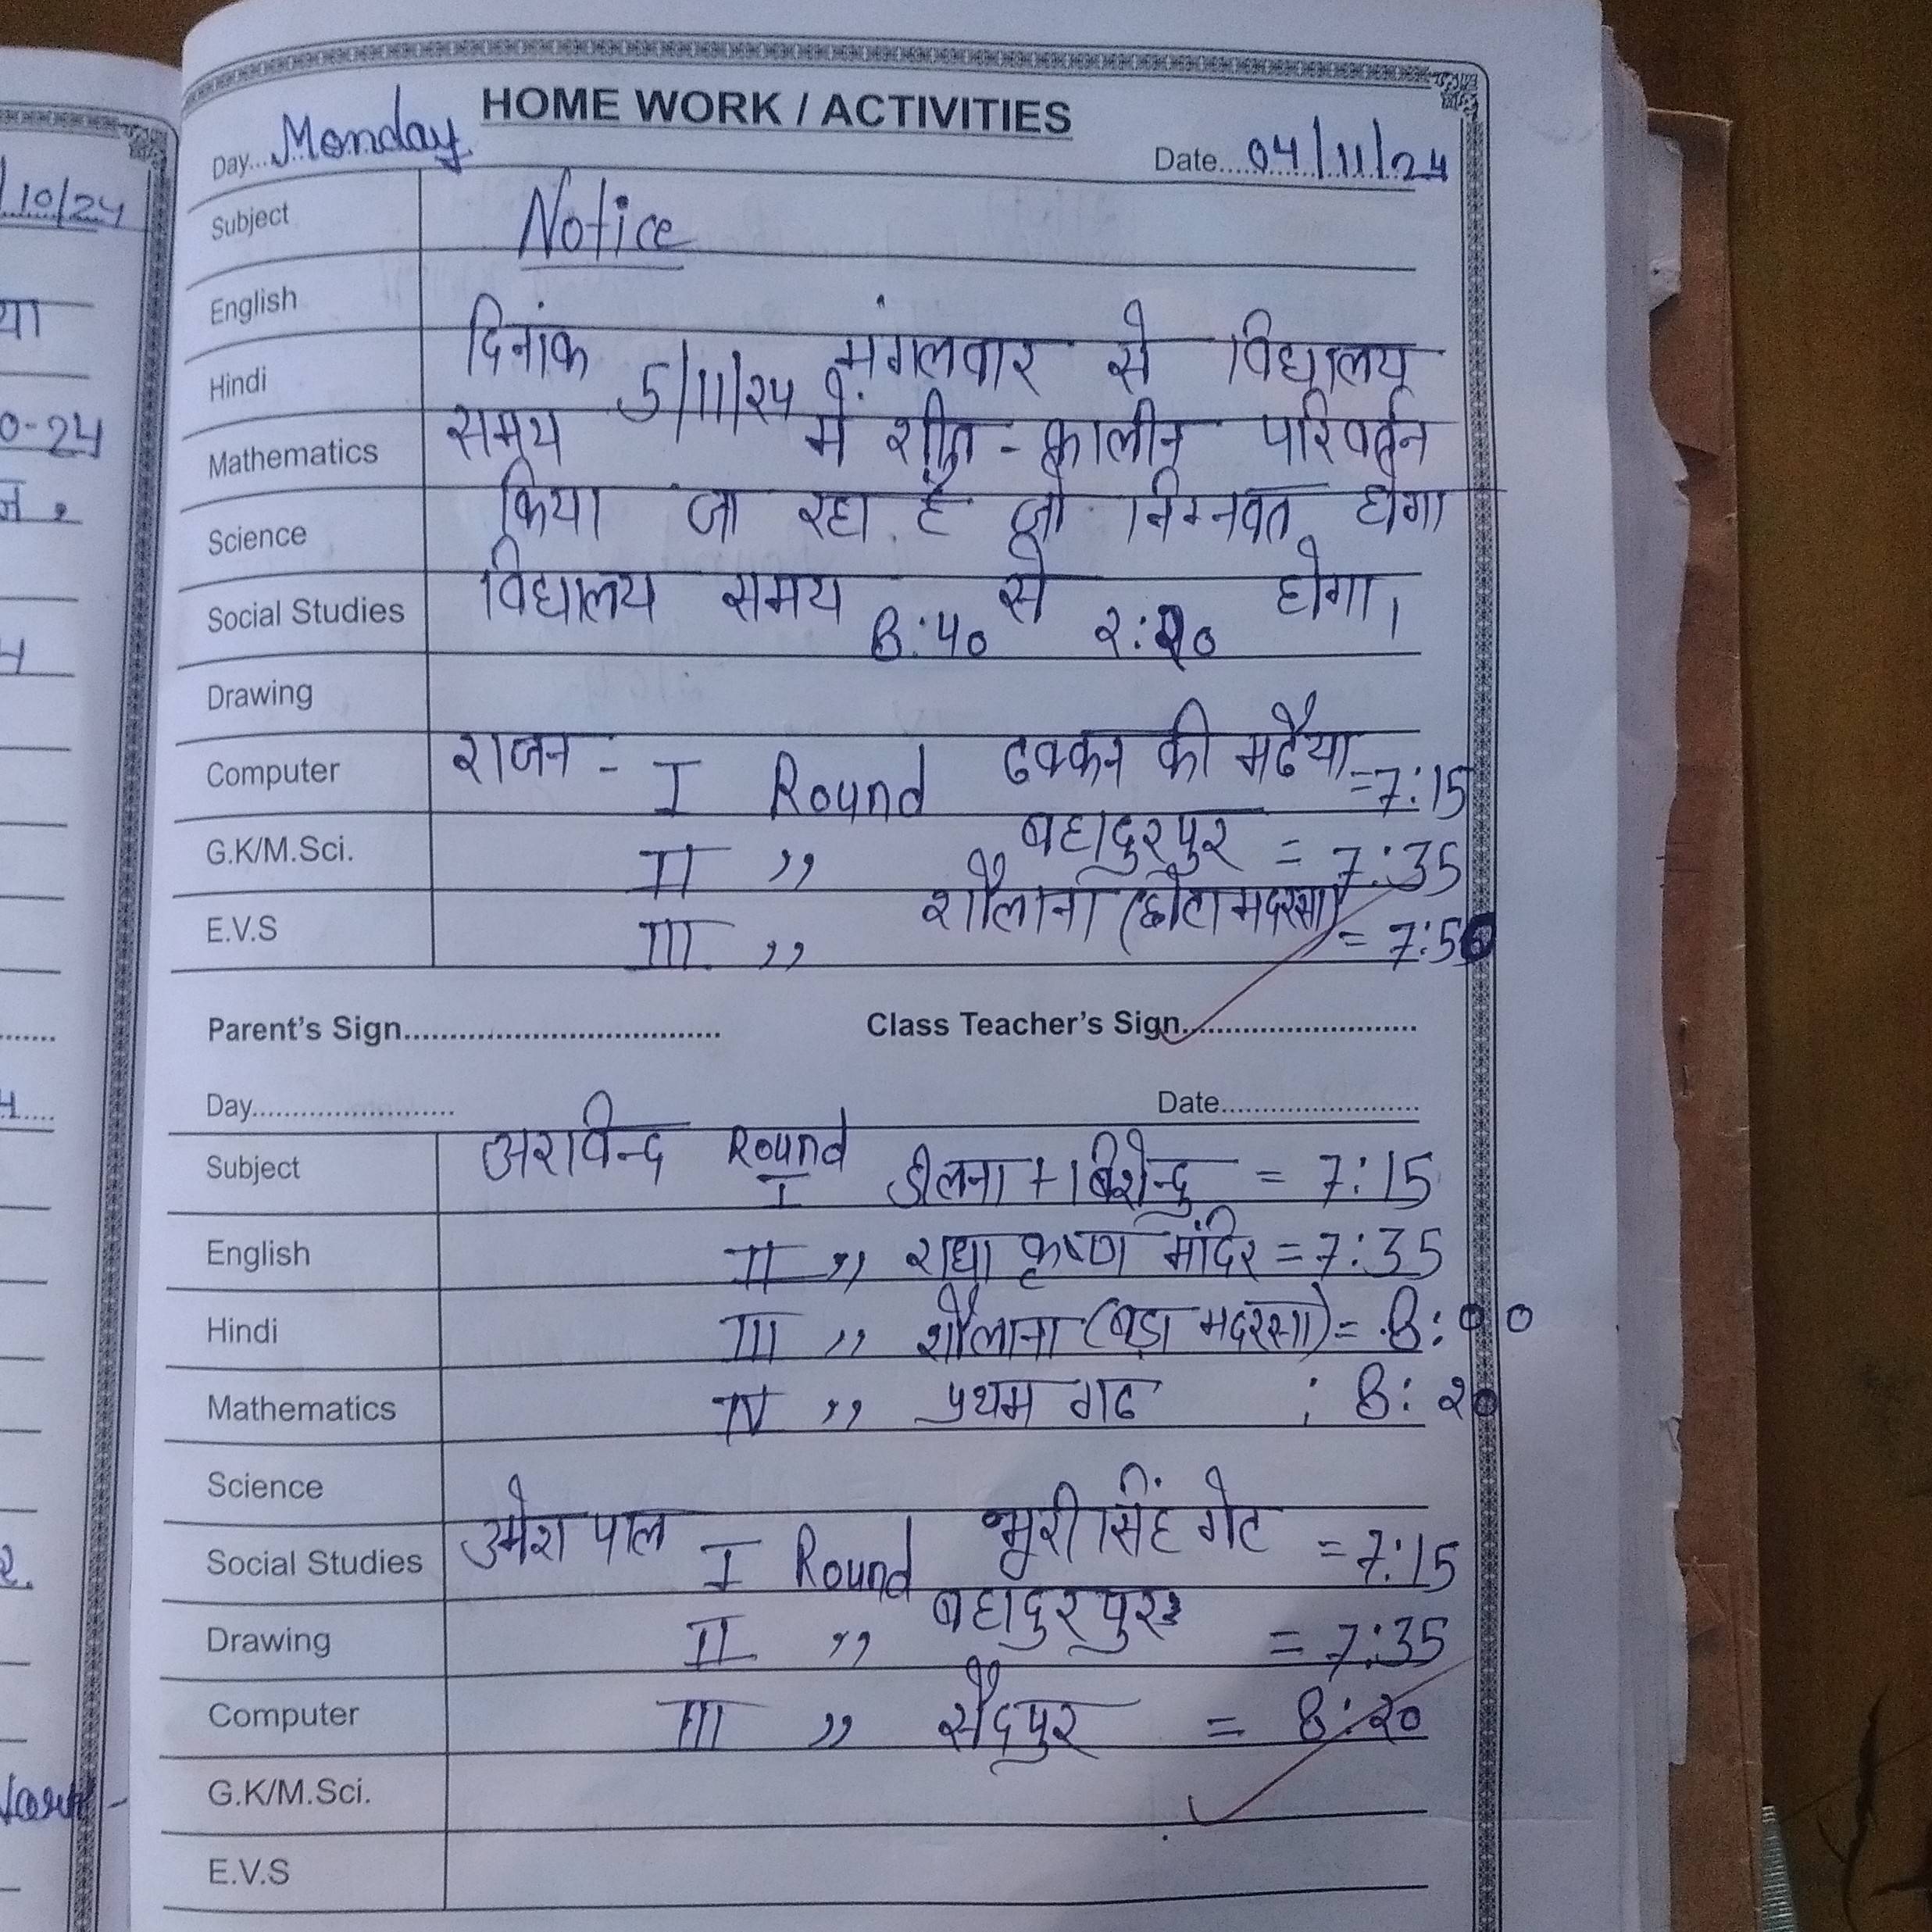 HOME WORK / ACTIVITIES
Day... Monday Date... 04/11/24
Subject Notice
English
Hindi दिनांक 5/11/24 मंगलवार से विद्यालय
Mathematics समय में शीत-कालीन परिवर्तन
Science किया जा रहा है जो निम्नवत होगा
Social Studies विद्यालय समय 8:40 से २:२0 होगा।
Drawing
Computer राजन - I Round ढक्कन की मढैया =7:15
G.K/M.Sci. II ,, बहादुरपुर = 7:35
E.V.S III ,, शौलाना (छोटा मदरसा) = 7:50
Parent's Sign........ Class Teacher's Sign........
Day........ Date........
Subject अरविन्द Round I = 7:15
English II ,, राधा कृष्ण मंदिर = 7:35
Hindi III ,, शौलाना (बड़ा मदरसा) = 8:00
Mathematics IV ,, प्रथम गढ : 8:२0
Science
Social Studies उमेश पाल I Round भूरी सिंह गेट = 7:15
Drawing II ,, बहादुरपुर = 7:35
Computer III ,, सैदपुर = 8:२0
G.K/M.Sci.
E.V.S
/10/24
या
0-24